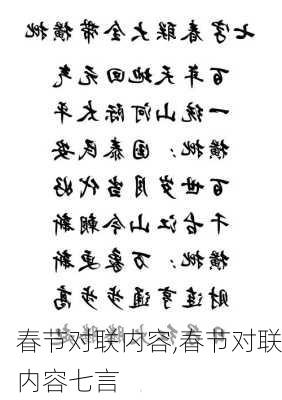 七字春联大全带横批
百年天地回元气
一统山河际太平
横批：国泰民安
百世岁月当代好
千古江山今朝新
横批：万象更新
财连亨通步步高
春节对联内容,春节对联
内容七言